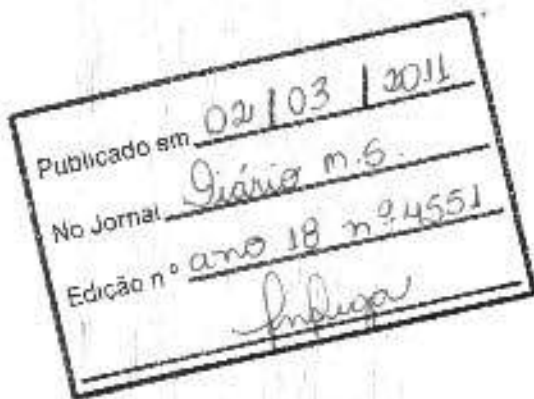 Publicado em 02/03/2011
No Jornal Diário M.S.
Edição nº ano 18 nº 4551